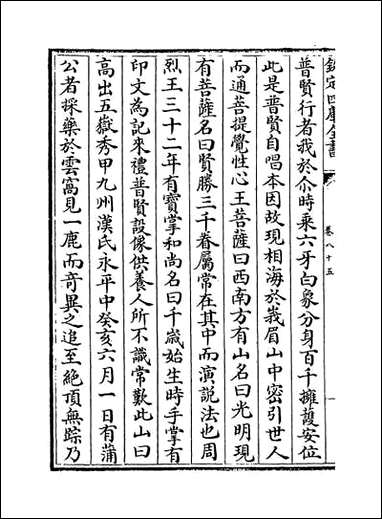 欽定四庫全書
卷八十五
普賢行者我於尒時乘六牙白象分身百千擁護安位
此是普賢自唱本因故現相海於峩眉山中密引世人
而通菩提覺性心王菩薩曰西南方有山名曰光明現
有菩薩名曰賢勝三千眷屬常在其中而演說法也周
烈王三十二年有寶掌和尚名曰千歲始生時手掌有
印文為記來禮普賢設像供養人所不識常歎此山曰
高出五嶽秀甲九州漢氏永平中癸亥六月一日有蒲
公者採藥於雲窩見一鹿而竒異之追至絶頂無踪乃